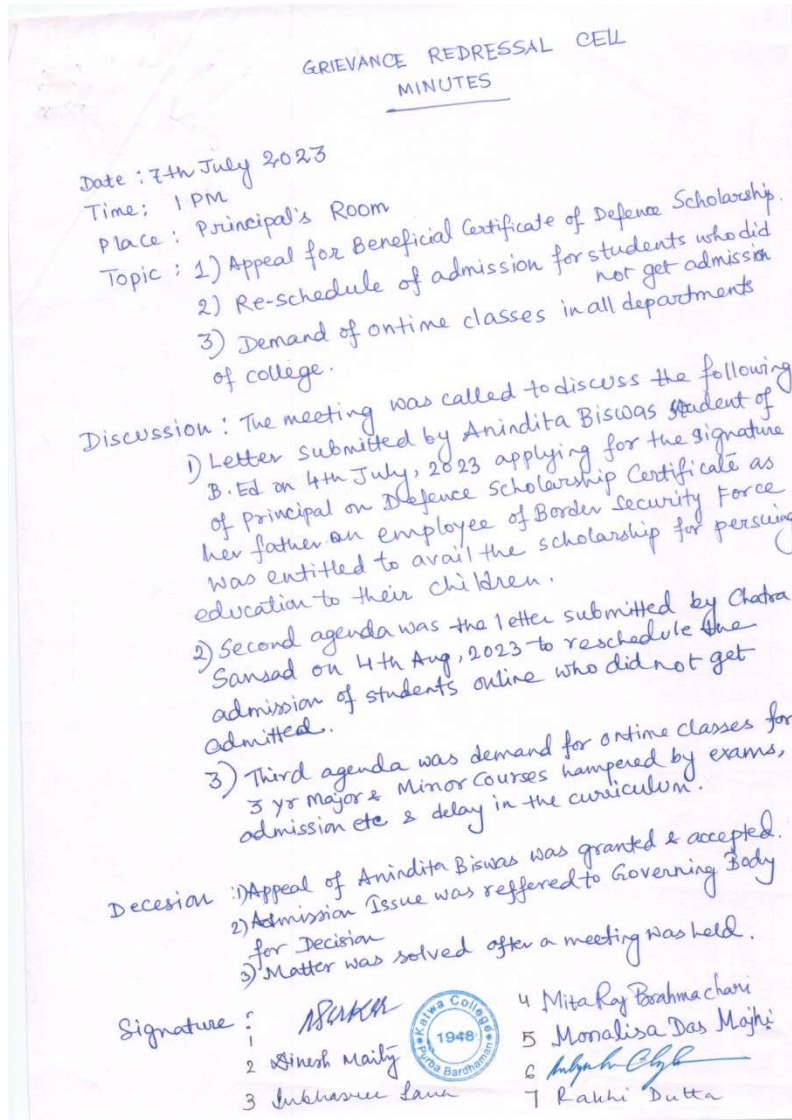 GRIEVANCE REDRESSAL CELL
MINUTES
Date : 7th July 2023
Time : 1 PM
Place : Principal's Room
Topic : 1) Appeal for Beneficial Certificate of Defence Scholarship.
2) Re-schedule of admission for students who did
not get admission
3) Demand of ontime classes in all departments
of college.
Discussion : The meeting was called to discuss the following
1) Letter submitted by Anindita Biswas student of
B.Ed on 4th July, 2023 applying for the signature
of principal on Defence Scholarship Certificate as
her father an employee of Border Security Force
was entitled to avail the scholarship for persuing
education to their children.
2) Second agenda was the letter submitted by Chatra
Sansad on 4th Aug, 2023 to reschedule the
admission of students online who did not get
admitted.
3) Third agenda was demand for ontime classes for
3 yr Major & Minor Courses hampered by exams,
admission etc & delay in the curriculum.
Decesion : 1) Appeal of Anindita Biswas was granted & accepted.
2) Admission Issue was reffered to Governing Body
for Decision
3) Matter was solved after a meeting was held.
Signature :
1
2 Dinesh Maity
3
4 Mita Ray Brahmachari
5 Monalisa Das Majhi
6
7 Rakhi Dutta
Katwa College
1948
Purba Bardhaman